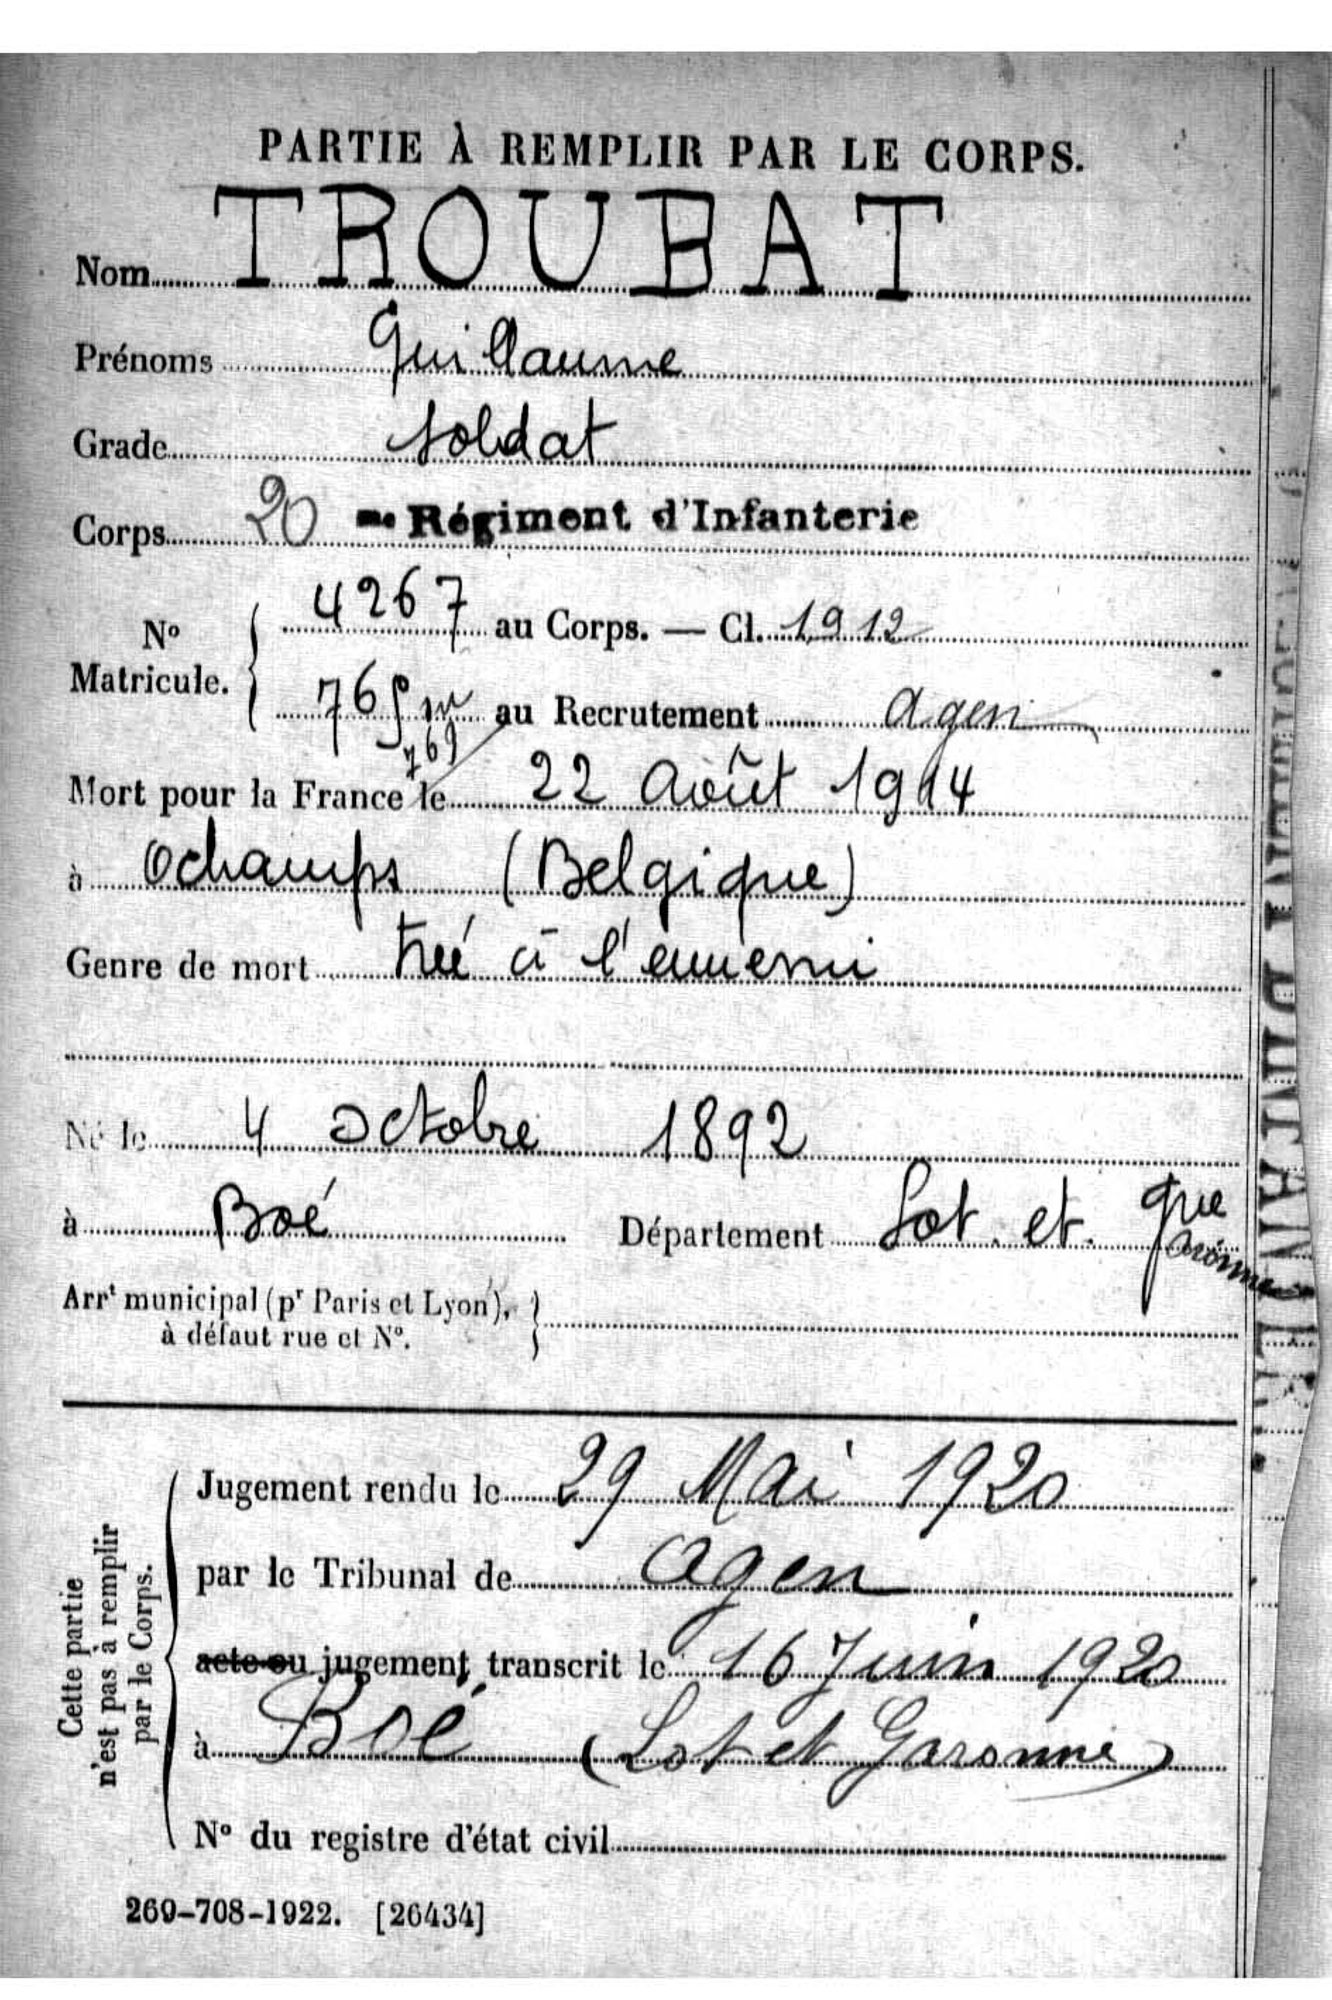 PARTIE À REMPLIR PAR LE CORPS.
Nom TROUBAT
Prénoms Guillaume
Grade Soldat
Corps 20 me Régiment d'Infanterie
No Matricule. 4267 au Corps. — Cl. 1912
769 au Recrutement Agen
Mort pour la France le 22 Août 1914
à Ochamps (Belgique)
Genre de mort tué à l'ennemi
Né le 4 Octobre 1892
à Boé Département Lot et Gne
Garonne
Arrt municipal (pr Paris et Lyon),
à défaut rue et No.
Cette partie
n'est pas à remplir
par le Corps.
Jugement rendu le 29 Mai 1920
par le Tribunal de Agen
acte ou jugement transcrit le 16 Juin 1920
à Boé (Lot et Garonne)
No du registre d'état civil
269-708-1922. [26434]